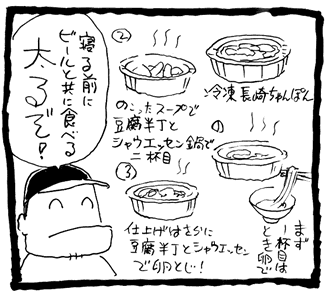 寝る前に
ビールと共に食べる
太るぞ!
冷凍長崎ちゃんぽん
①
まず
一杯目は
とき卵で
②
のこったスープで
豆腐半丁と
シャウエッセン鍋で
二杯目
③
仕上げはさらに
豆腐半丁とシャウエッセン
で卵とじ!